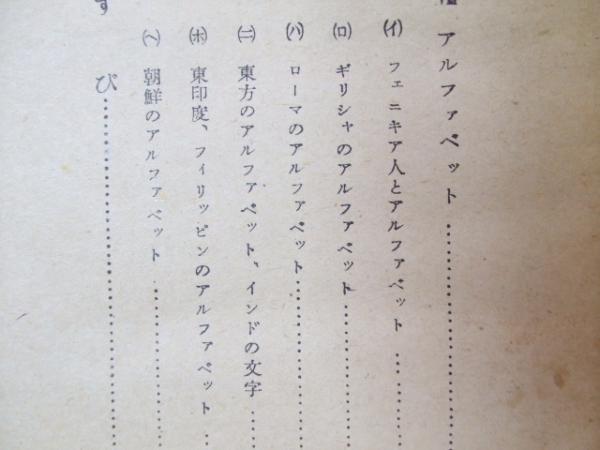 アルファベット……………………
(イ) フェニキア人とアルファベット……………
(ロ) ギリシャのアルファベット……………
(ハ) ローマのアルファベット……………
(ニ) 東方のアルファベット、インドの文字……
(ホ) 東印度、フィリッピンのアルファベット……
(ヘ) 朝鮮のアルファベット……………
すび……………………